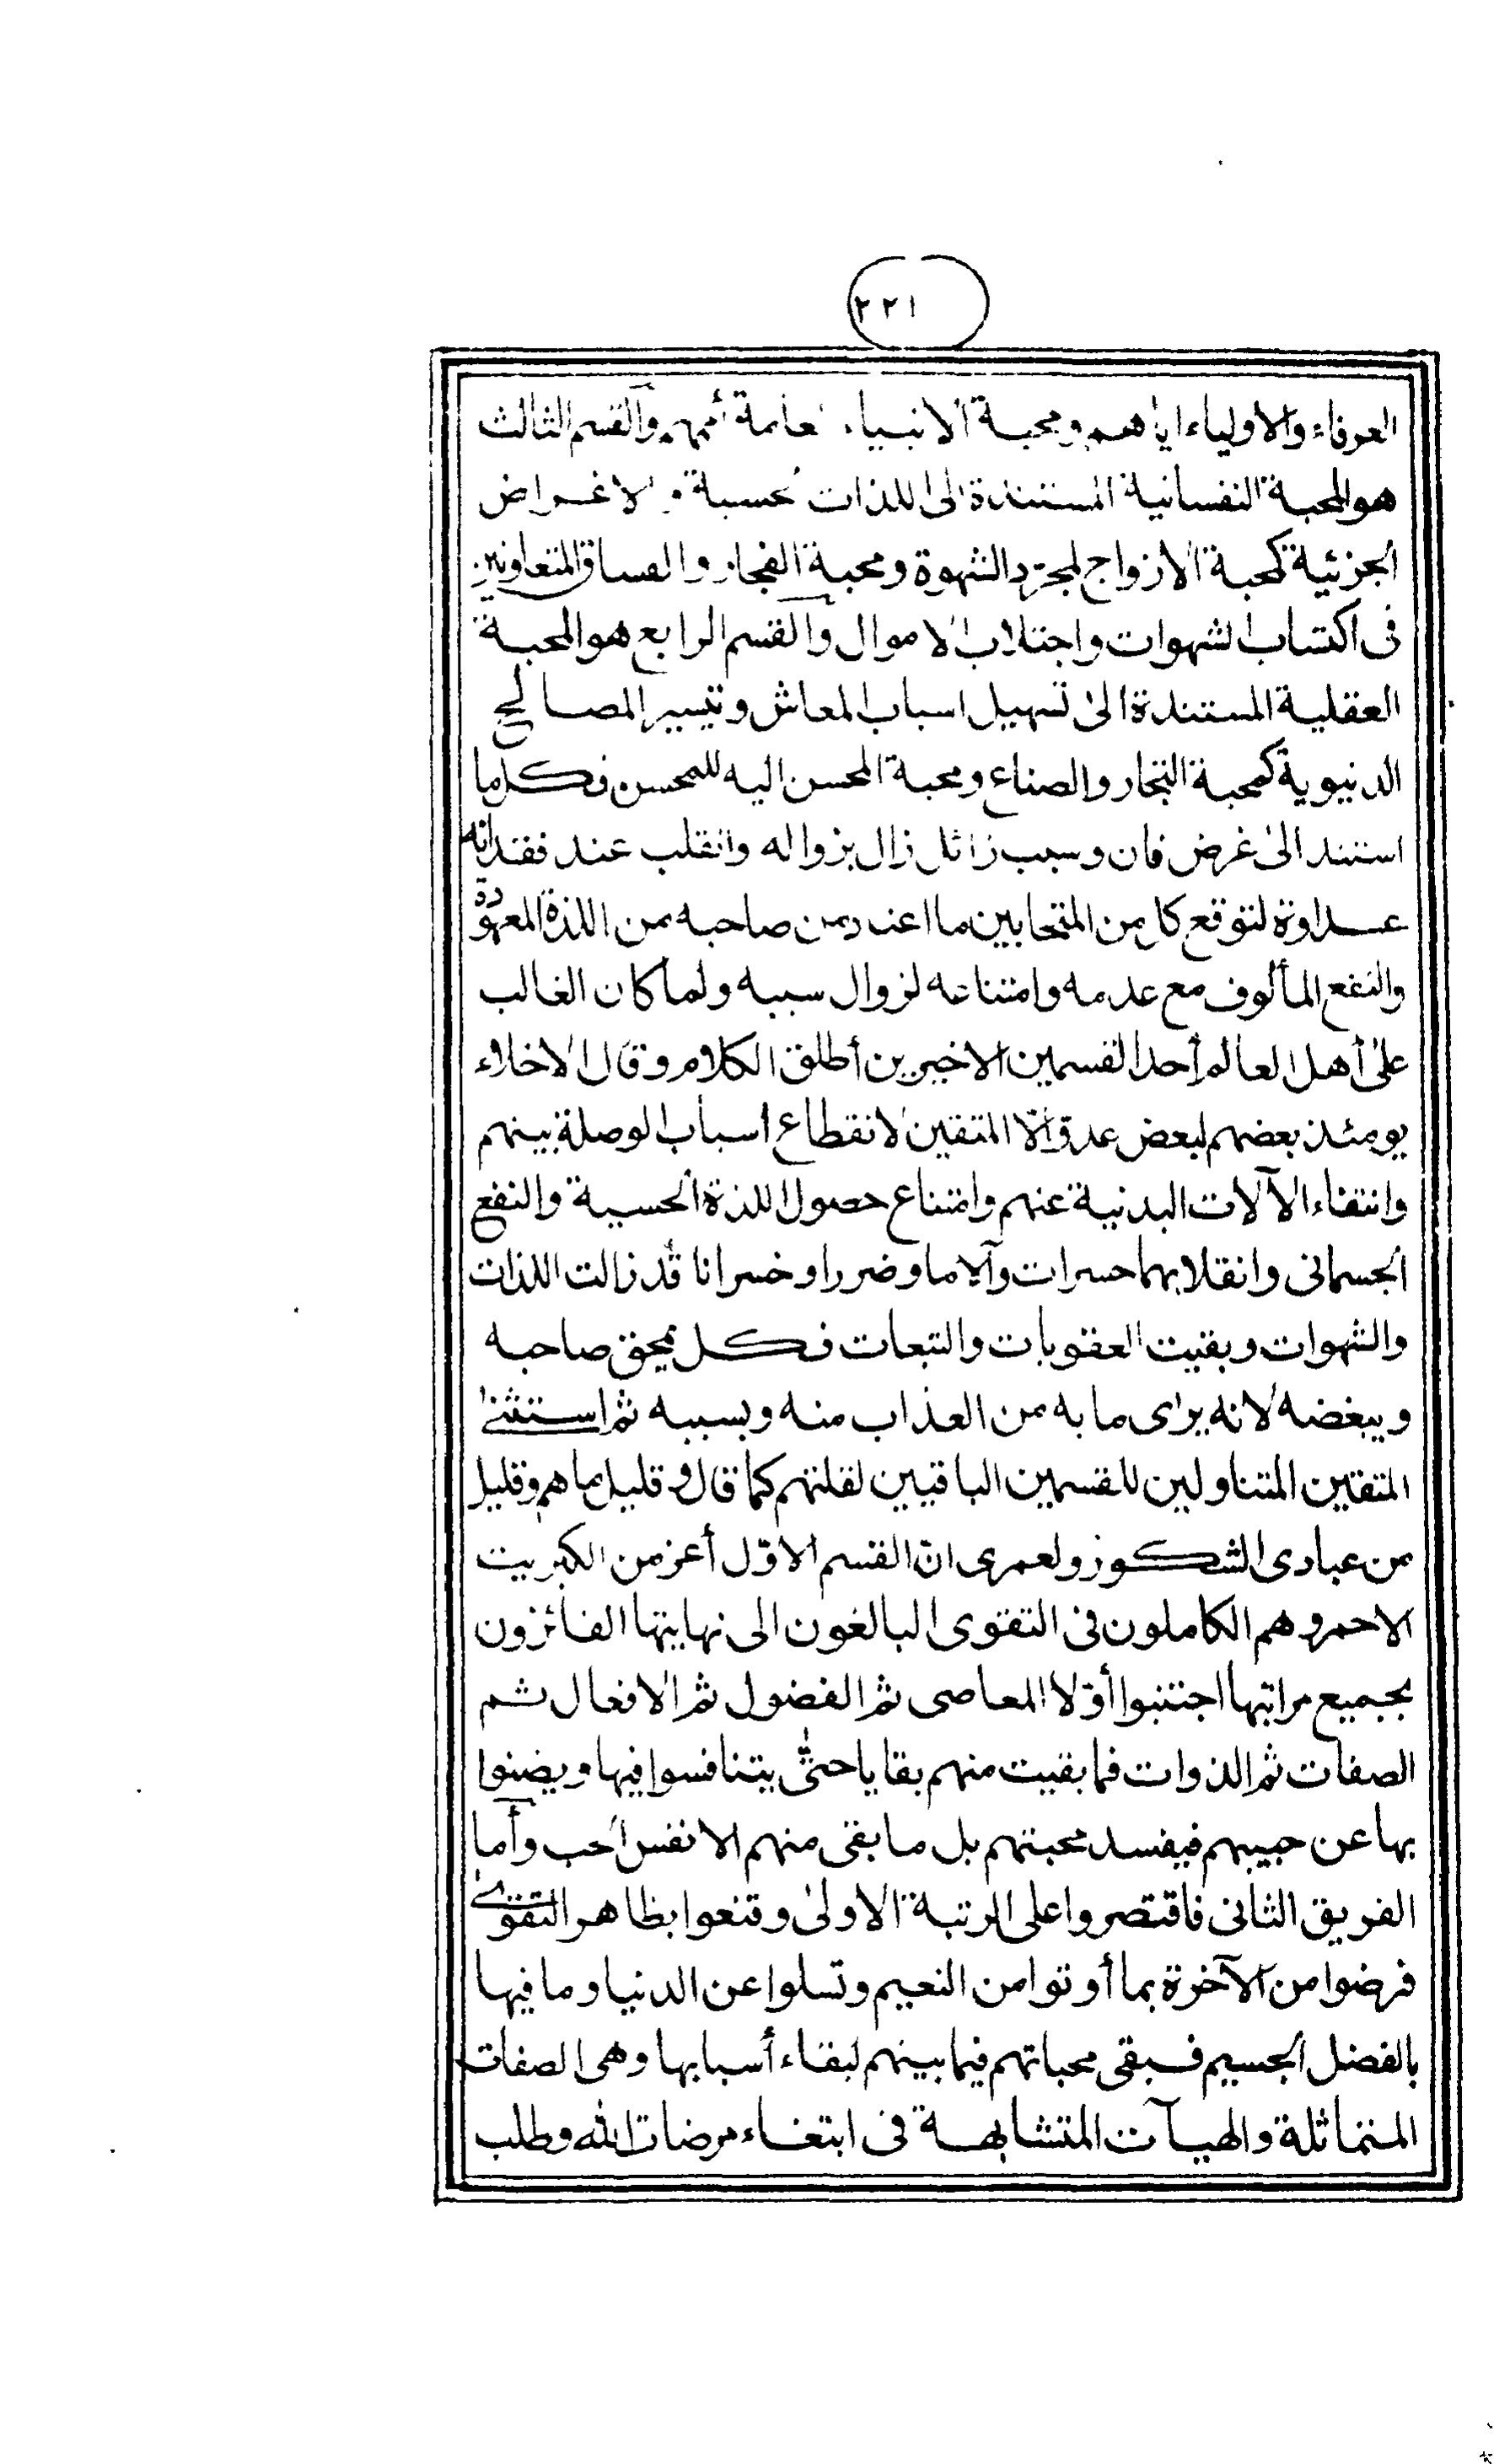 ٢٢١
العرفاء والاولياء اياهم ومحبة الانبياء عامة أممهم والقسم الثالث
هو المحبة النفسانية المستندة الى اللذات الحسية والاغراض
الجزئية كمحبة الازواج لمجرّد الشهوة ومحبة الفجار والفساق المتعاونين
فى اكتساب الشهوات واجتلاب الاموال والقسم الرابع هو المحبة
العقلية المستندة الى تسهيل اسباب المعاش وتيسير المصالح
الدنيوية كمحبة التجار والصناع ومحبة المحسن اليه للمحسن فكل ما
استند الى غرض فان وسبب زائل زال بزواله وانقلب عند فقدانه
عداوة لتوقع كل من المتحابين ما اعتاد من صاحبه من اللذة المعهودة
والنفع المألوف مع عدمه وامتناعه لزوال سببه ولما كان الغالب
على أهل العالم أحد القسمين الاخيرين أطلق الكلام وقال الاخلاء
يومئذ بعضهم لبعض عدوّ الا المتقين لانقطاع اسباب الوصلة بينهم
وانتفاء الآلات البدنية عنهم وامتناع حصول اللذة الحسية والنفع
الجسمانى وانقلابهما حسرات وآلاما وضررا وخسرانا قد زالت اللذات
والشهوات وبقيت العقوبات والتبعات فكل يمحق صاحبه
ويبغضه لانه يرى ما به من العذاب منه وبسببه ثم استثنى
المتقين المتناولين للقسمين الباقيين لقلتهم كما قال وقليل ما هم وقليل
من عبادى الشكور ولعمرى انّ القسم الاوّل أعز من الكبريت
الاحمر وهم الكاملون فى التقوى البالغون الى نهايتها الفائزون
بجميع مراتبها اجتنبوا أوّلا المعاصى ثم الفضول ثم الافعال ثم
الصفات ثم الذوات فما بقيت منهم بقايا حتى يتنافسوا فيها ويضنوا
بها عن حبيبهم فيفسد محبتهم بل ما بقى منهم الا نفس الحب وأما
الفريق الثانى فاقتصروا على الرتبة الاولى وقنعوا بظاهر التقوى
فرضوا من الآخرة بما أوتوا من النعيم وتسلوا عن الدنيا وما فيها
بالفضل الجسيم فيبقى محباتهم فيما بينهم لبقاء أسبابها وهى الصفات
المتماثلة والهيآت المتشابهة فى ابتغاء مرضات الله وطلب